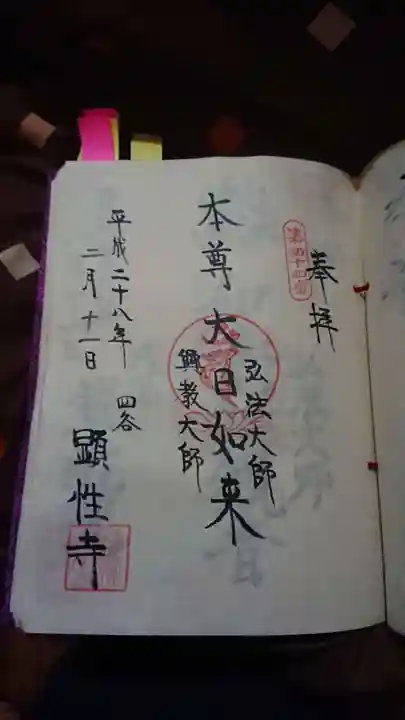 奉拝
弘法大師
本尊 大日如来
興教大師
平成二十八年
二月十一日
四谷
顕性寺